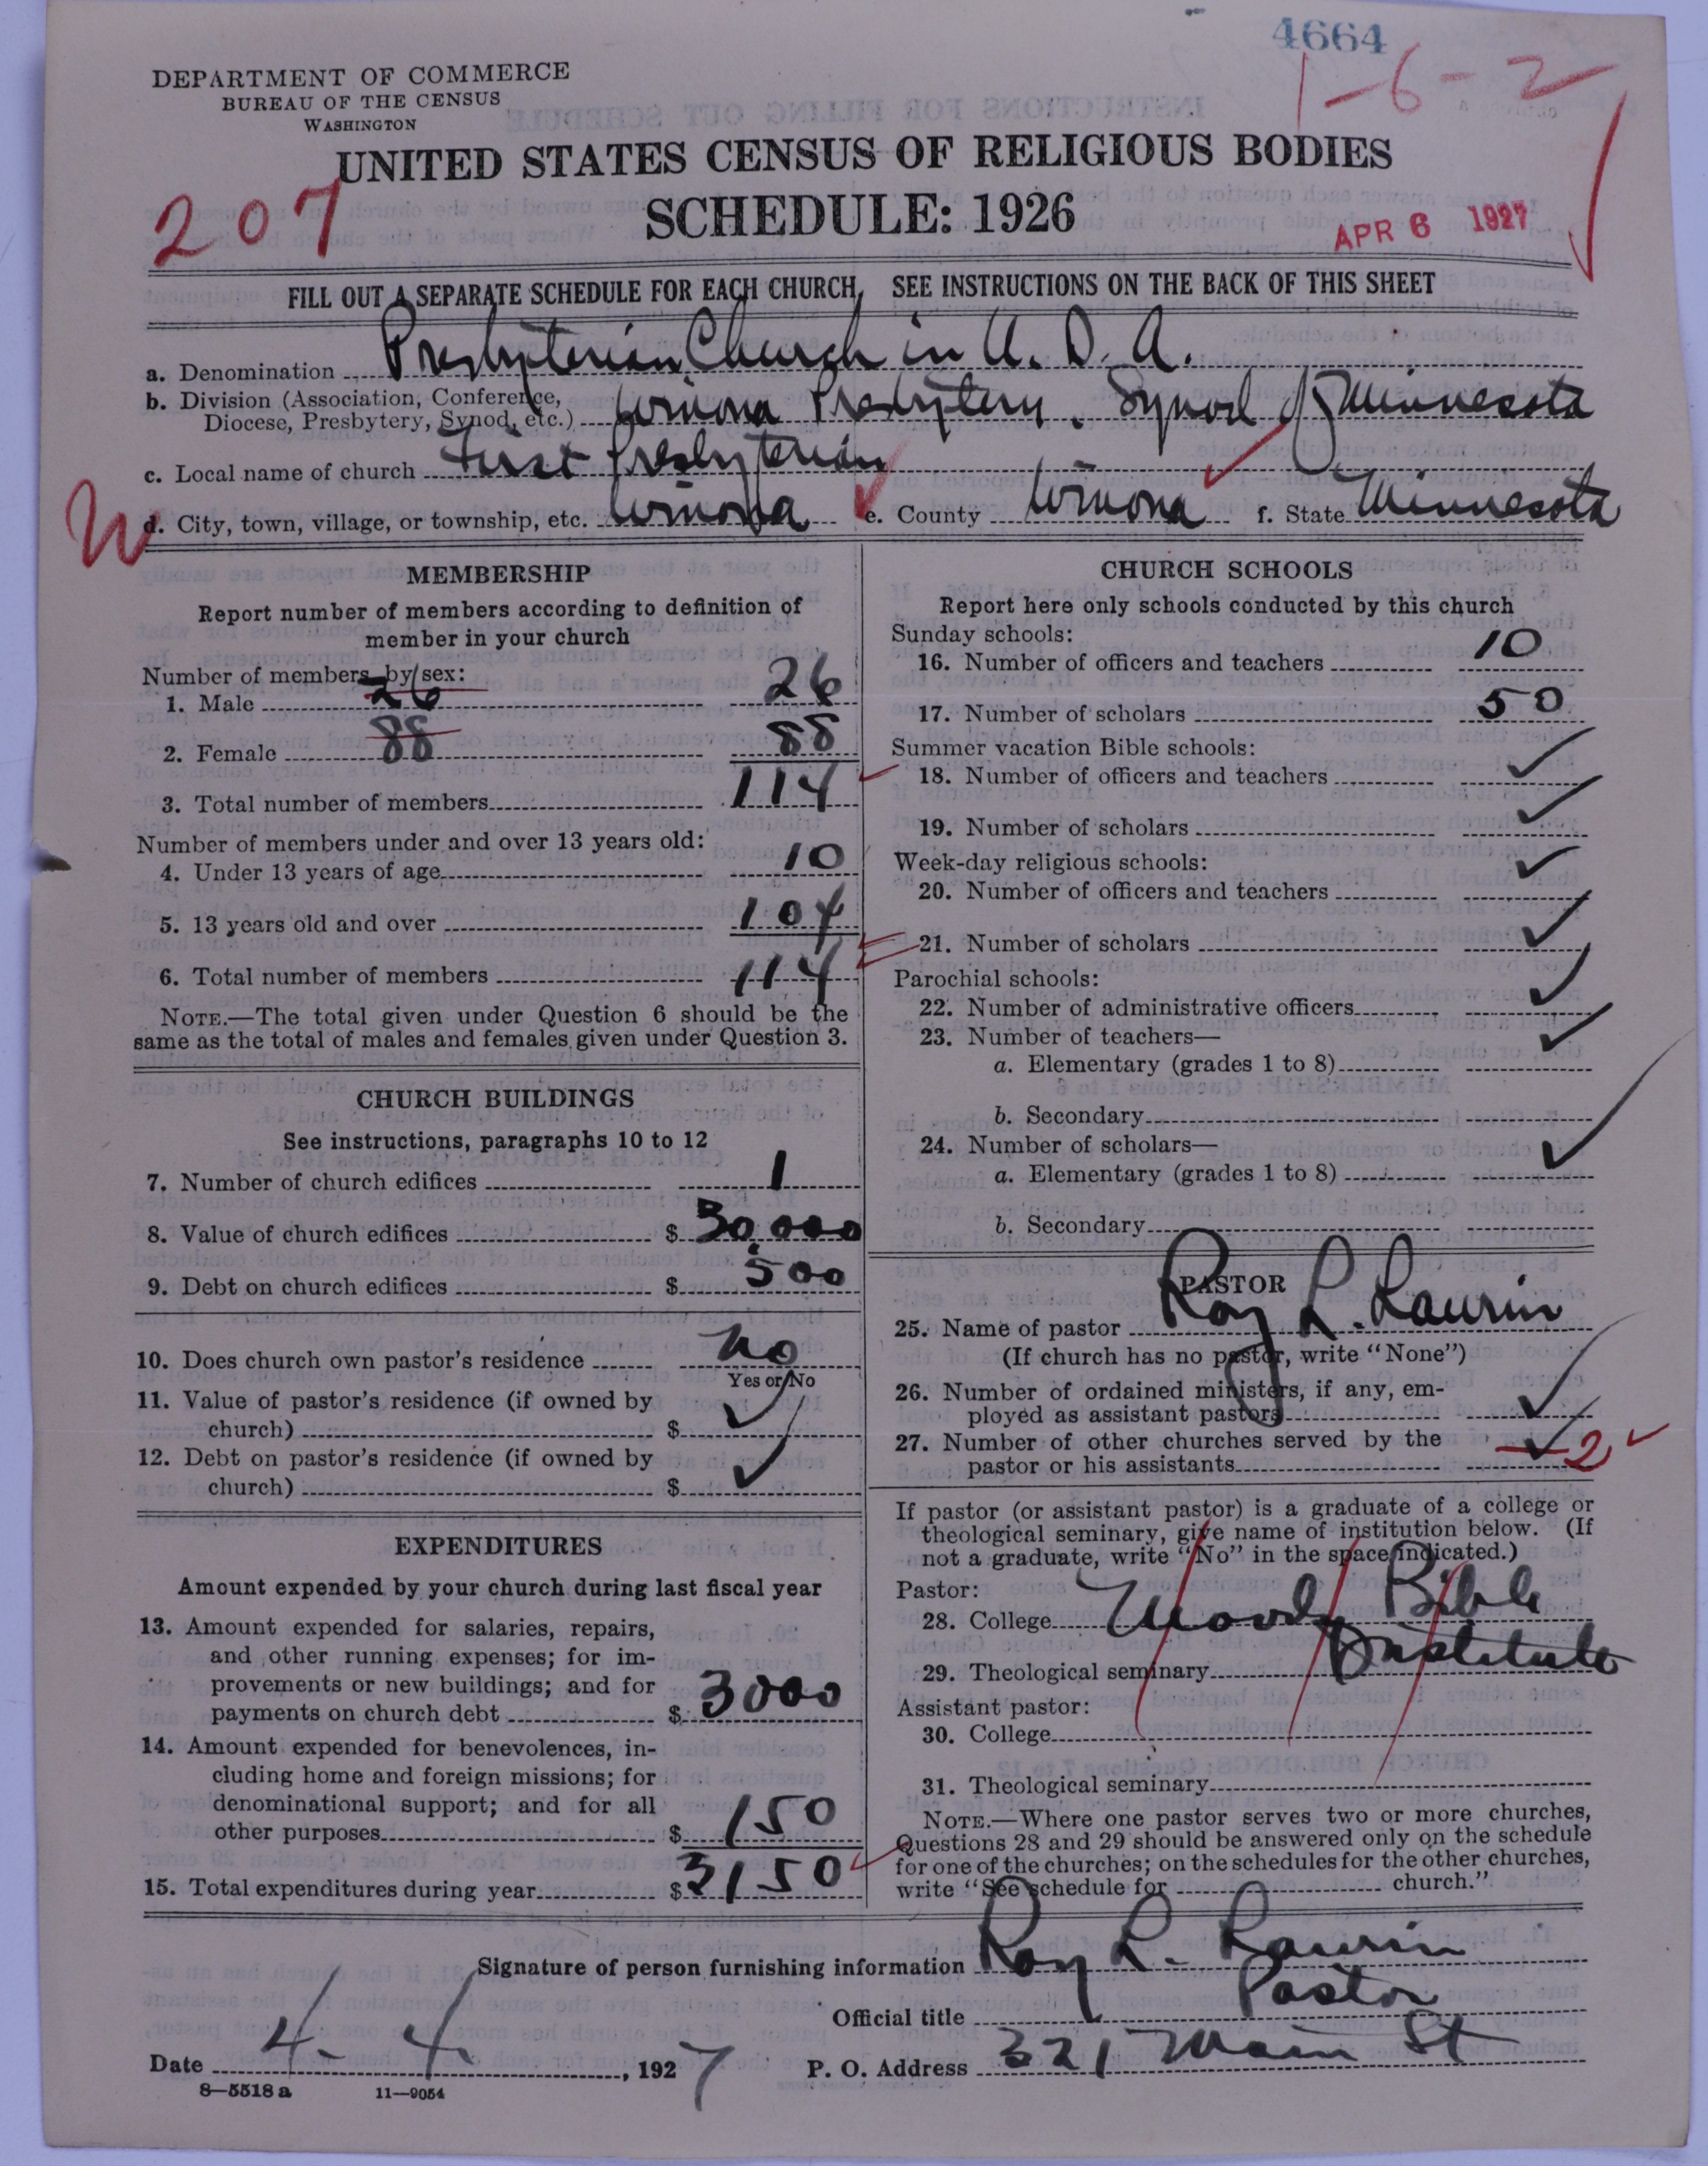 4664
1-6-2
DEPARTMENT OF COMMERCE
BUREAU OF THE CENSUS
WASHINGTON
UNITED STATES CENSUS OF RELIGIOUS BODIES
207
SCHEDULE: 1926
APR 6 1927
FILL OUT A SEPARATE SCHEDULE FOR EACH CHURCH. SEE INSTRUCTIONS ON THE BACK OF THIS SHEET
a. Denomination Presbyterian Church in U.S.A.
b. Division (Association, Conference,
Diocese, Presbytery, Synod, etc.) Winona Presbytery. Synod of Minnesota
c. Local name of church First Presbyterian
W
d. City, town, village, or township, etc. Winona e. County Winona f. State Minnesota
MEMBERSHIP
Report number of members according to definition of
member in your church
Number of members by sex:
1. Male 26 26
2. Female 88 88
3. Total number of members 114
Number of members under and over 13 years old:
4. Under 13 years of age 10
5. 13 years old and over 104
6. Total number of members 114
NOTE.—The total given under Question 6 should be the
same as the total of males and females given under Question 3.
CHURCH BUILDINGS
See instructions, paragraphs 10 to 12
7. Number of church edifices 1
8. Value of church edifices $ 30,000
9. Debt on church edifices $ 500
10. Does church own pastor's residence No
Yes or No
11. Value of pastor's residence (if owned by
church) $ ✓
12. Debt on pastor's residence (if owned by
church) $ ✓
EXPENDITURES
Amount expended by your church during last fiscal year
13. Amount expended for salaries, repairs,
and other running expenses; for im-
provements or new buildings; and for
payments on church debt $ 3000
14. Amount expended for benevolences, in-
cluding home and foreign missions; for
denominational support; and for all
other purposes $ 150
15. Total expenditures during year $ 3150
CHURCH SCHOOLS
Report here only schools conducted by this church
Sunday schools:
16. Number of officers and teachers 10
17. Number of scholars 50
Summer vacation Bible schools:
18. Number of officers and teachers ✓
19. Number of scholars ✓
Week-day religious schools:
20. Number of officers and teachers ✓
21. Number of scholars ✓
Parochial schools:
22. Number of administrative officers ✓
23. Number of teachers—
a. Elementary (grades 1 to 8) ✓
b. Secondary
24. Number of scholars—
a. Elementary (grades 1 to 8) ✓
b. Secondary
PASTOR
25. Name of pastor Roy L. Laurin
(If church has no pastor, write "None")
26. Number of ordained ministers, if any, em-
ployed as assistant pastors ✓
27. Number of other churches served by the
pastor or his assistants ✓ 2 ✓
If pastor (or assistant pastor) is a graduate of a college or
theological seminary, give name of institution below. (If
not a graduate, write "No" in the space indicated.)
Pastor:
28. College Moody Bible
29. Theological seminary Institute
Assistant pastor:
30. College
31. Theological seminary
NOTE.—Where one pastor serves two or more churches,
Questions 28 and 29 should be answered only on the schedule
for one of the churches; on the schedules for the other churches,
write "See schedule for church."
Signature of person furnishing information Roy L. Laurin
Official title Pastor
Date 4. 4. , 1927 P. O. Address 321 Main St
8—5518 a 11—9054